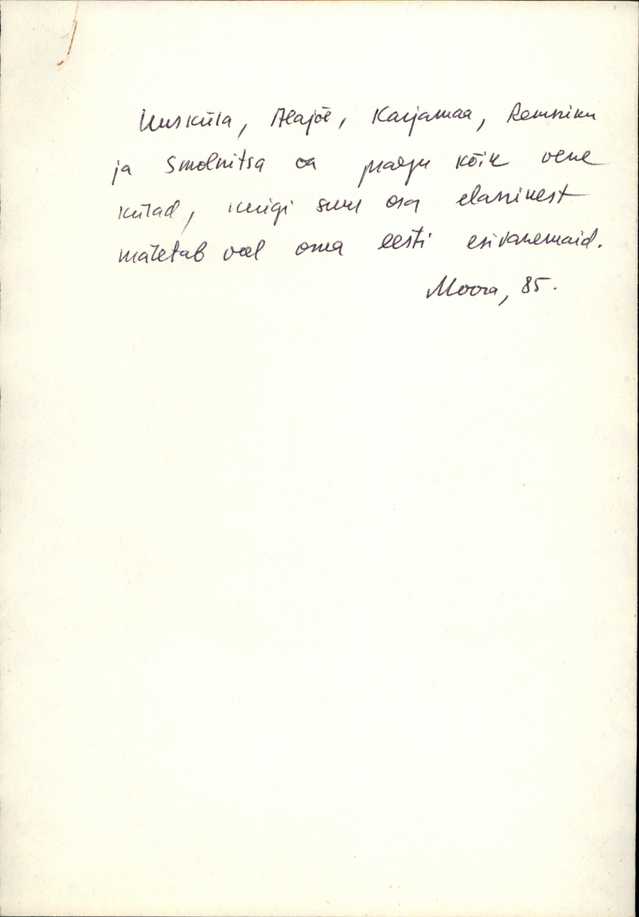 Uusküla, Alajõe, Karjamaa, Remniku
ja Smolnitsa on praegu kõik vene
külad, kuigi suur osa elanikest
mäletab veel oma eesti esivanemaid.
Moora, 85.